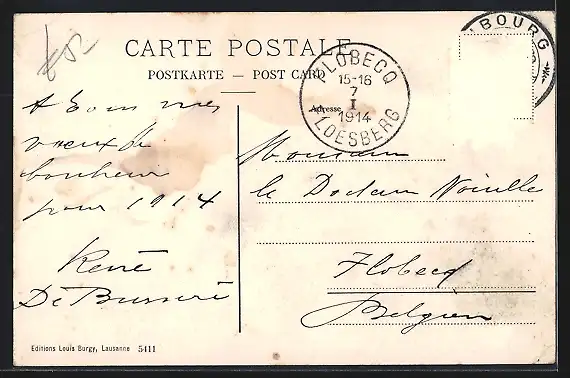 CARTE POSTALE
POSTKARTE — POST CARD
FLOBECQ
15-16
7
I
1914
VLOESBERG
BOURG
Adresse
A vous mes
vœux de
bonheur
pour 1914
René
De Busseré
Monsieur
le Docteur Noirelle
Flobecq
Belgien
Editions Louis Burgy, Lausanne 5411